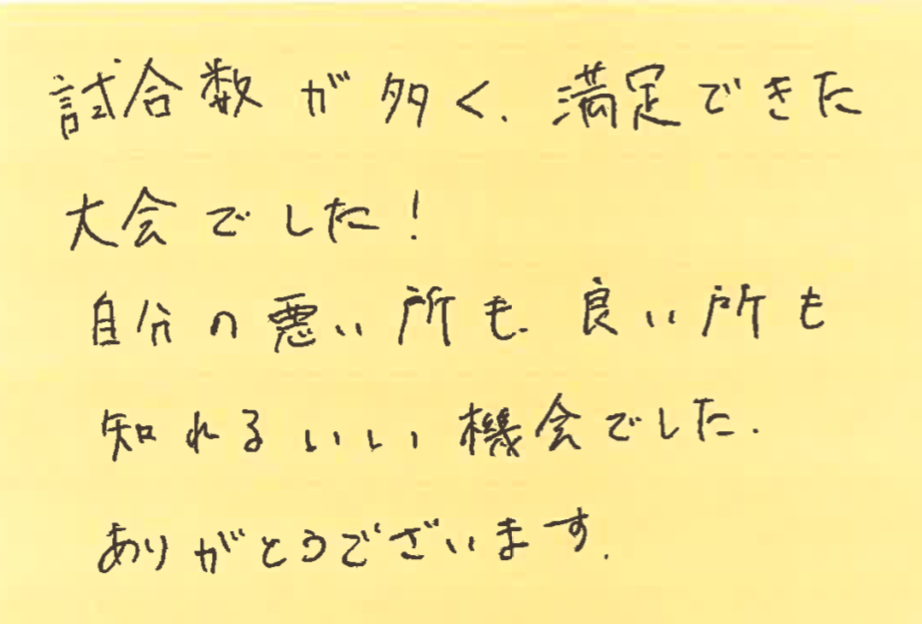 試合数が多く、満足できた
大会でした！
自分の悪い所も、良い所も
知れるいい機会でした。
ありがとうございます。